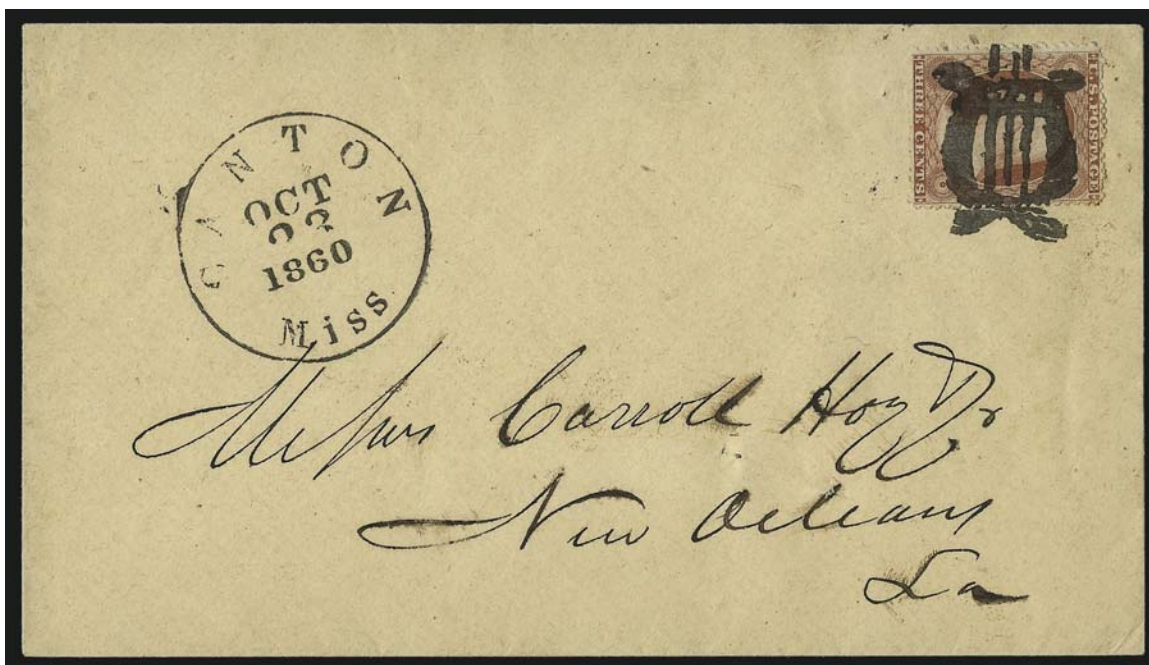 CANTON
OCT
23
1860
Miss
U.S. POSTAGE
THREE CENTS
Messrs Carroll Hoy
New Orleans
La